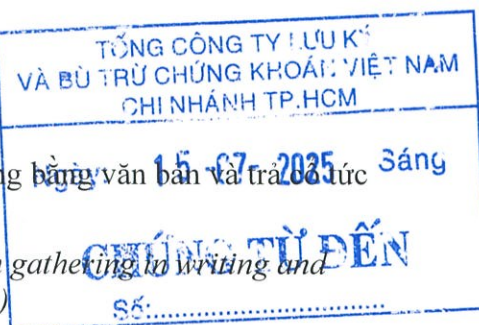 TỔNG CÔNG TY LƯU KÝ
VÀ BÙ TRỪ CHỨNG KHOÁN VIỆT NAM
CHI NHÁNH TP.HCM
Ngày: 15 -07- 2025 Sáng
ng bằng văn bản và trả cổ tức
CHỨNG TỪ ĐẾN
gathering in writing and
Số:................................